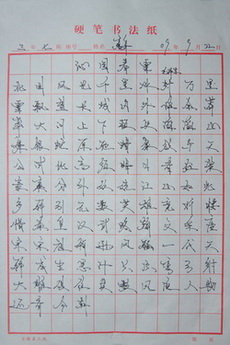 硬笔书法纸
沁园春雪
北国风光千里冰封万里
雪飘望长城内外惟余莽
莽大河上下顿失滔滔山
舞银蛇原驰蜡象欲与天
公试比高须晴日看红装
素裹分外妖娆江山如此
多娇引无数英雄竞折腰
惜秦皇汉武略输文采唐
宗宋祖稍逊风骚一代天
骄成吉思汗只识弯弓射
大雕俱往矣数风流人物
还看今朝